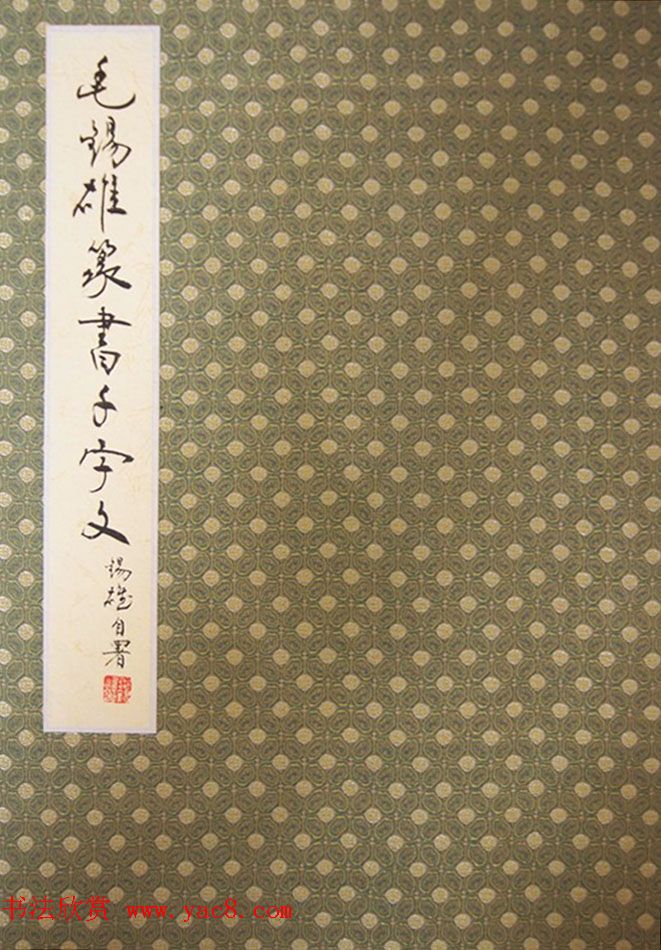 毛錫雄篆書千字文
錫雄自署
书法欣赏 www.yac8.com